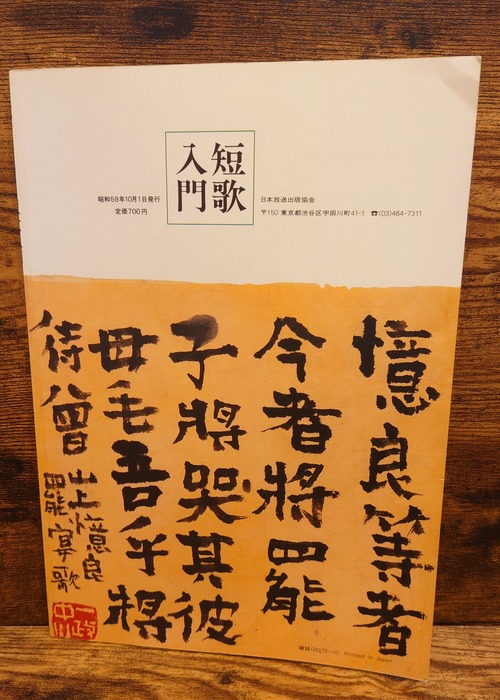 短歌
入門
昭和59年10月1日発行
定価700円
日本放送出版協会
〒150 東京都渋谷区宇田川町41-1 ☎(03)464-7311
憶良等者
今者將罷
子將哭其彼
母毛吾乎將
待曾
山上憶良
罷宴歌
一政
中川
雑誌 Printed in Japan